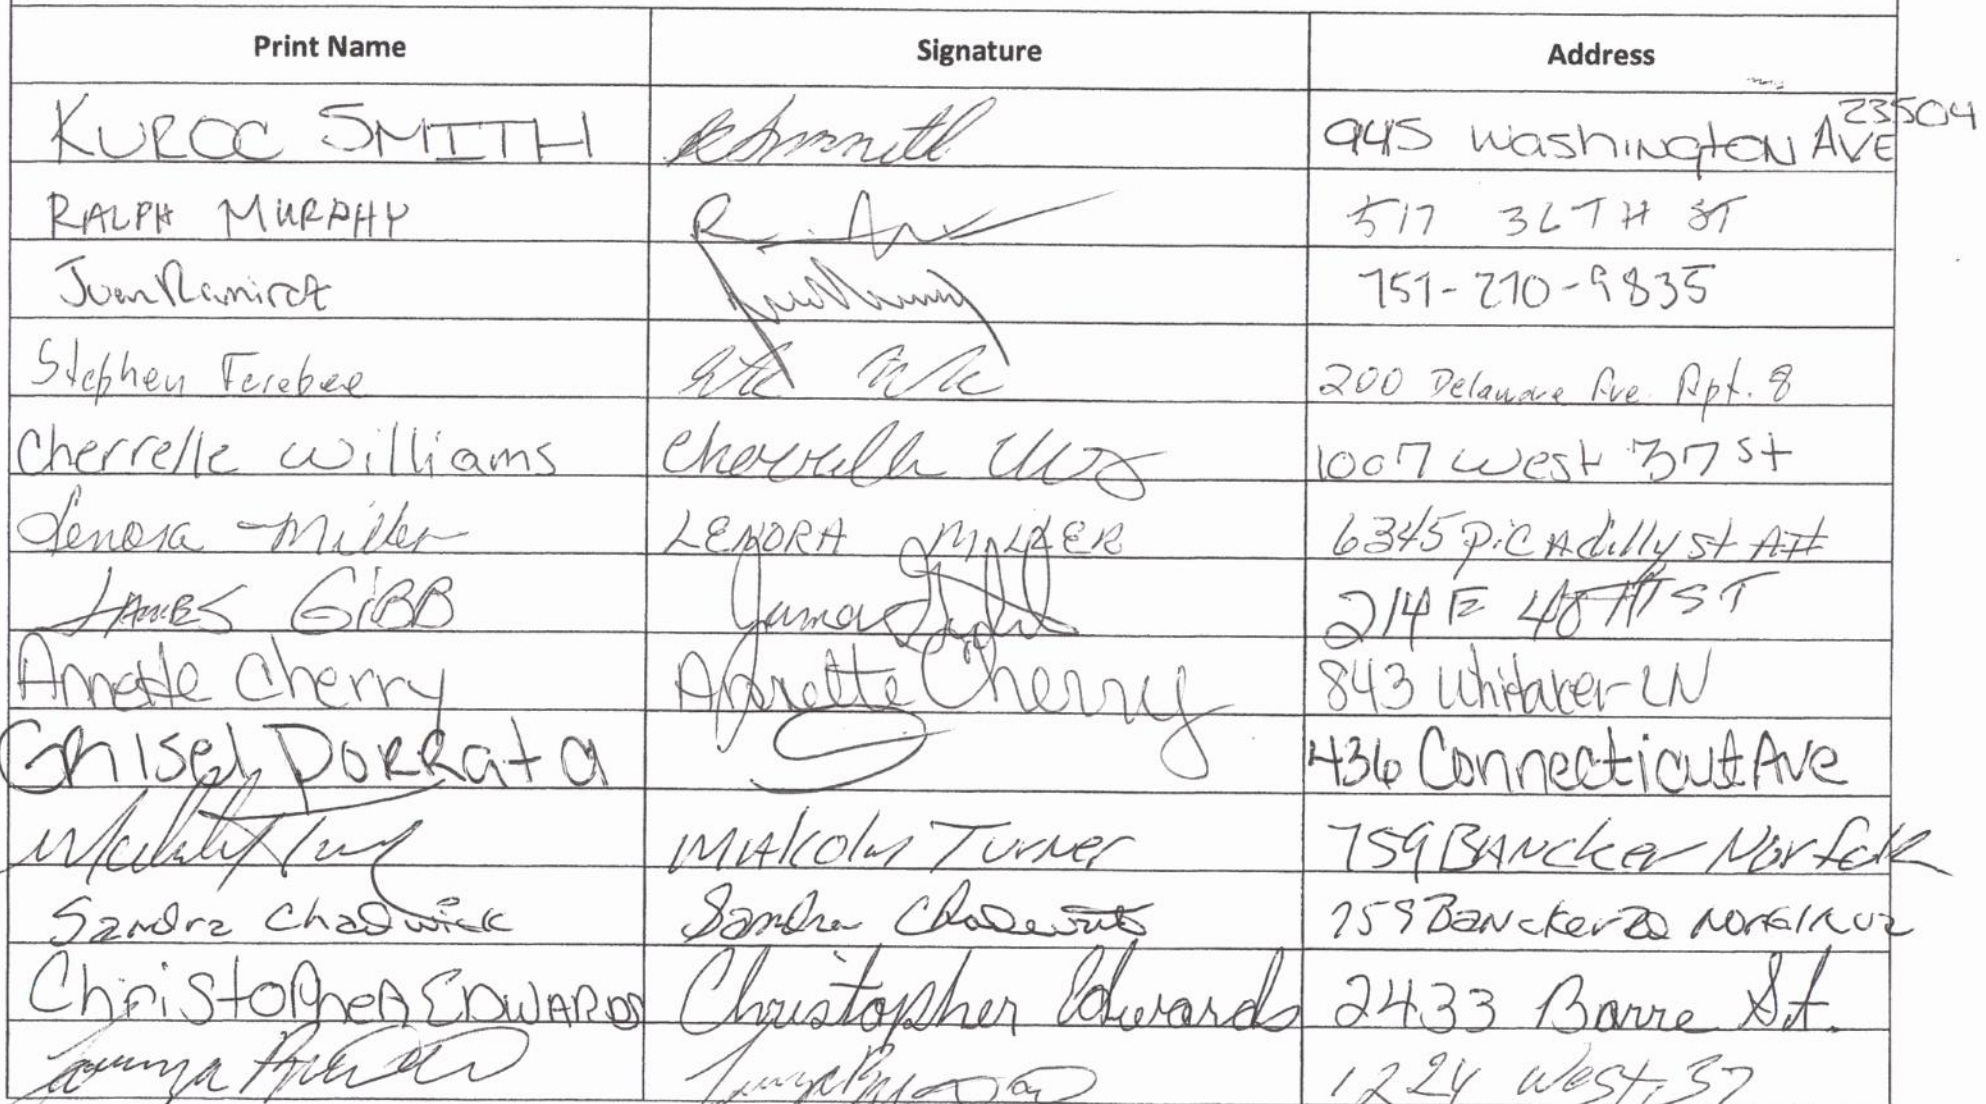 Print Name Signature Address
KUROC SMITH 945 Washington AVE 23504
RALPH MURPHY 517 36TH ST
Juan Ramirez 757-270-9835
Stephen Ferebee 200 Delaware Ave. Apt. 8
Cherrelle Williams Cherrelle 1007 West 37 st
Lenora Miller LENORA MILLER 6345 Picadilly st
JAMES GIBB James 214 E 40TH ST
Annette Cherry Annette Cherry 843 Whitaker LN
Ghisel Dorrata 436 Connecticut Ave
Malkolm Turner 759 BANcker Norfolk
Sandra Chadwick Sandra Chadwick 759 Bancker Rd Norfolk VA
Christopher EDWARDS Christopher Edwards 2433 Barre St.
1224 West 37